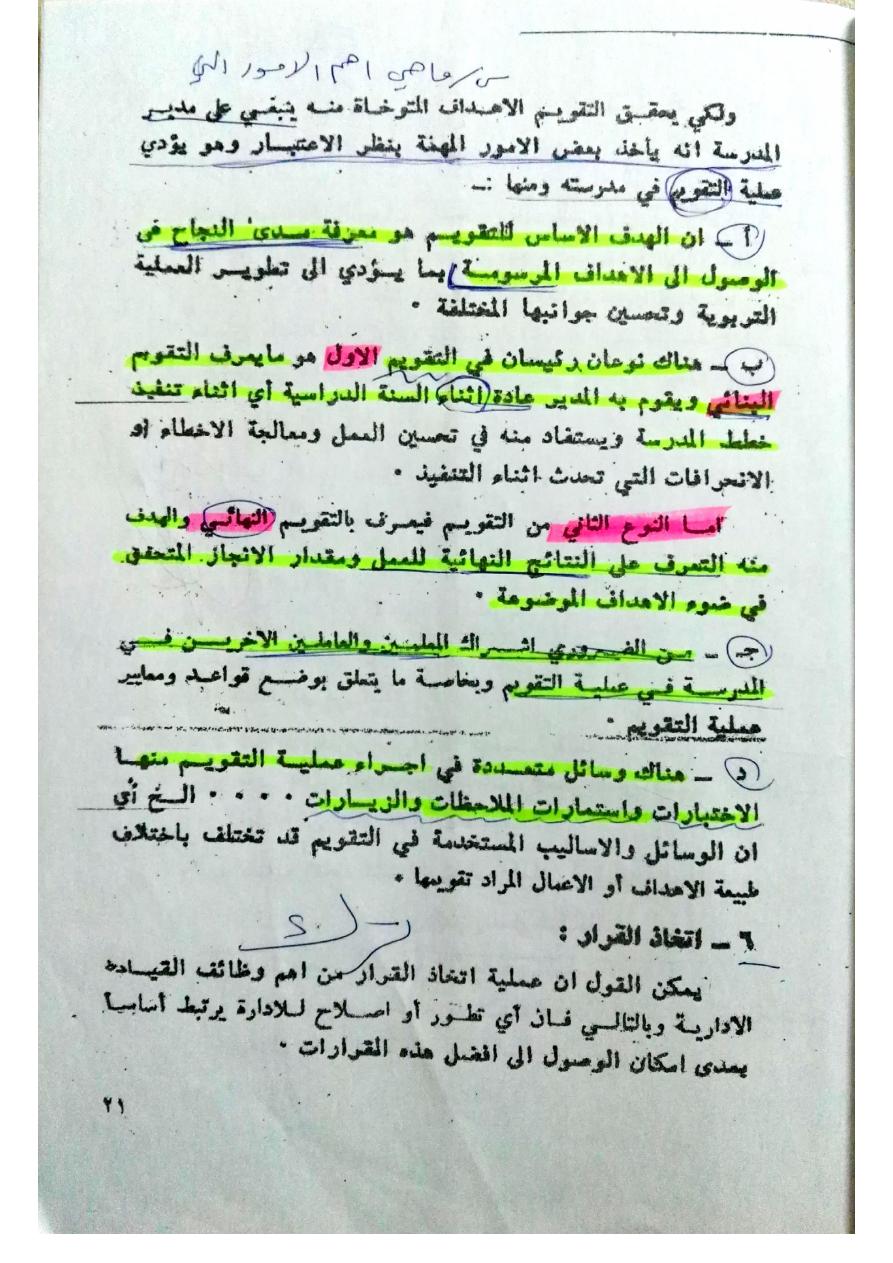 س/ ماهي اهم الامور التي
ولكي يحقق التقويم الاهداف المتوخاة منه ينبغي على مدير
المدرسة انه يأخذ بعض الامور المهمة بنظر الاعتبار وهو يؤدي
عملية التقويم في مدرسته ومنها :ـ
أ ـ ان الهدف الاساس للتقويم هو معرفة مدى النجاح في
الوصول الى الاهداف المرسومة بما يؤدي الى تطوير العملية
التربوية وتحسين جوانبها المختلفة ٠
ب ـ هناك نوعان رئيسان في التقويم الاول هو مايعرف التقويم
البنائي ويقوم به المدير عادة اثناء السنة الدراسية أي اثناء تنفيذ
خطط المدرسة ويستفاد منه في تحسين العمل ومعالجة الاخطاء او
الانحرافات التي تحدث اثناء التنفيذ ٠
اما النوع الثاني من التقويم فيعرف بالتقويم النهائي والهدف
منه التعرف على النتائج النهائية للعمل ومقدار الانجاز المتحقق
في ضوء الاهداف الموضوعة ٠
جـ ـ من الضروري اشراك المعلمين والعاملين الاخرين في
المدرسة في عملية التقويم وبخاصة ما يتعلق بوضع قواعد ومعايير
عملية التقويم ٠
د ـ هناك وسائل متعددة في اجراء عملية التقويم منها
الاختبارات واستمارات الملاحظات والزيارات ٠ ٠ ٠ ٠ الخ أي
ان الوسائل والاساليب المستخدمة في التقويم قد تختلف باختلاف
طبيعة الاهداف أو الاعمال المراد تقويمها ٠
٦ ـ اتخاذ القرار :
يمكن القول ان عملية اتخاذ القرار من اهم وظائف القيادة
الادارية وبالتالي فان أي تطور أو اصلاح للادارة يرتبط أساسأ
بمدى امكان الوصول الى افضل هذه القرارات ٠
٢١